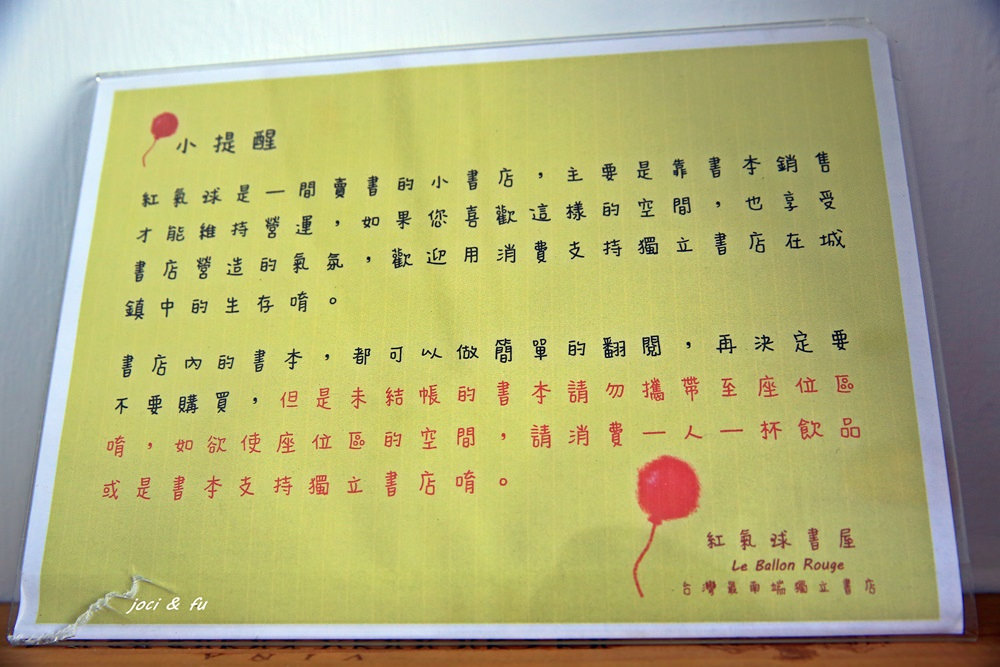 小提醒
紅氣球是一間賣書的小書店，主要是靠書本銷售
才能維持營運，如果您喜歡這樣的空間，也享受
書店營造的氣氛，歡迎用消費支持獨立書店在城
鎮中的生存唷。
書店內的書本，都可以做簡單的翻閱，再決定要
不要購買，但是未結帳的書本請勿攜帶至座位區
唷，如欲使座位區的空間，請消費一人一杯飲品
或是書本支持獨立書店唷。
紅氣球書屋
Le Ballon Rouge
台灣最南端獨立書店
joci & fu